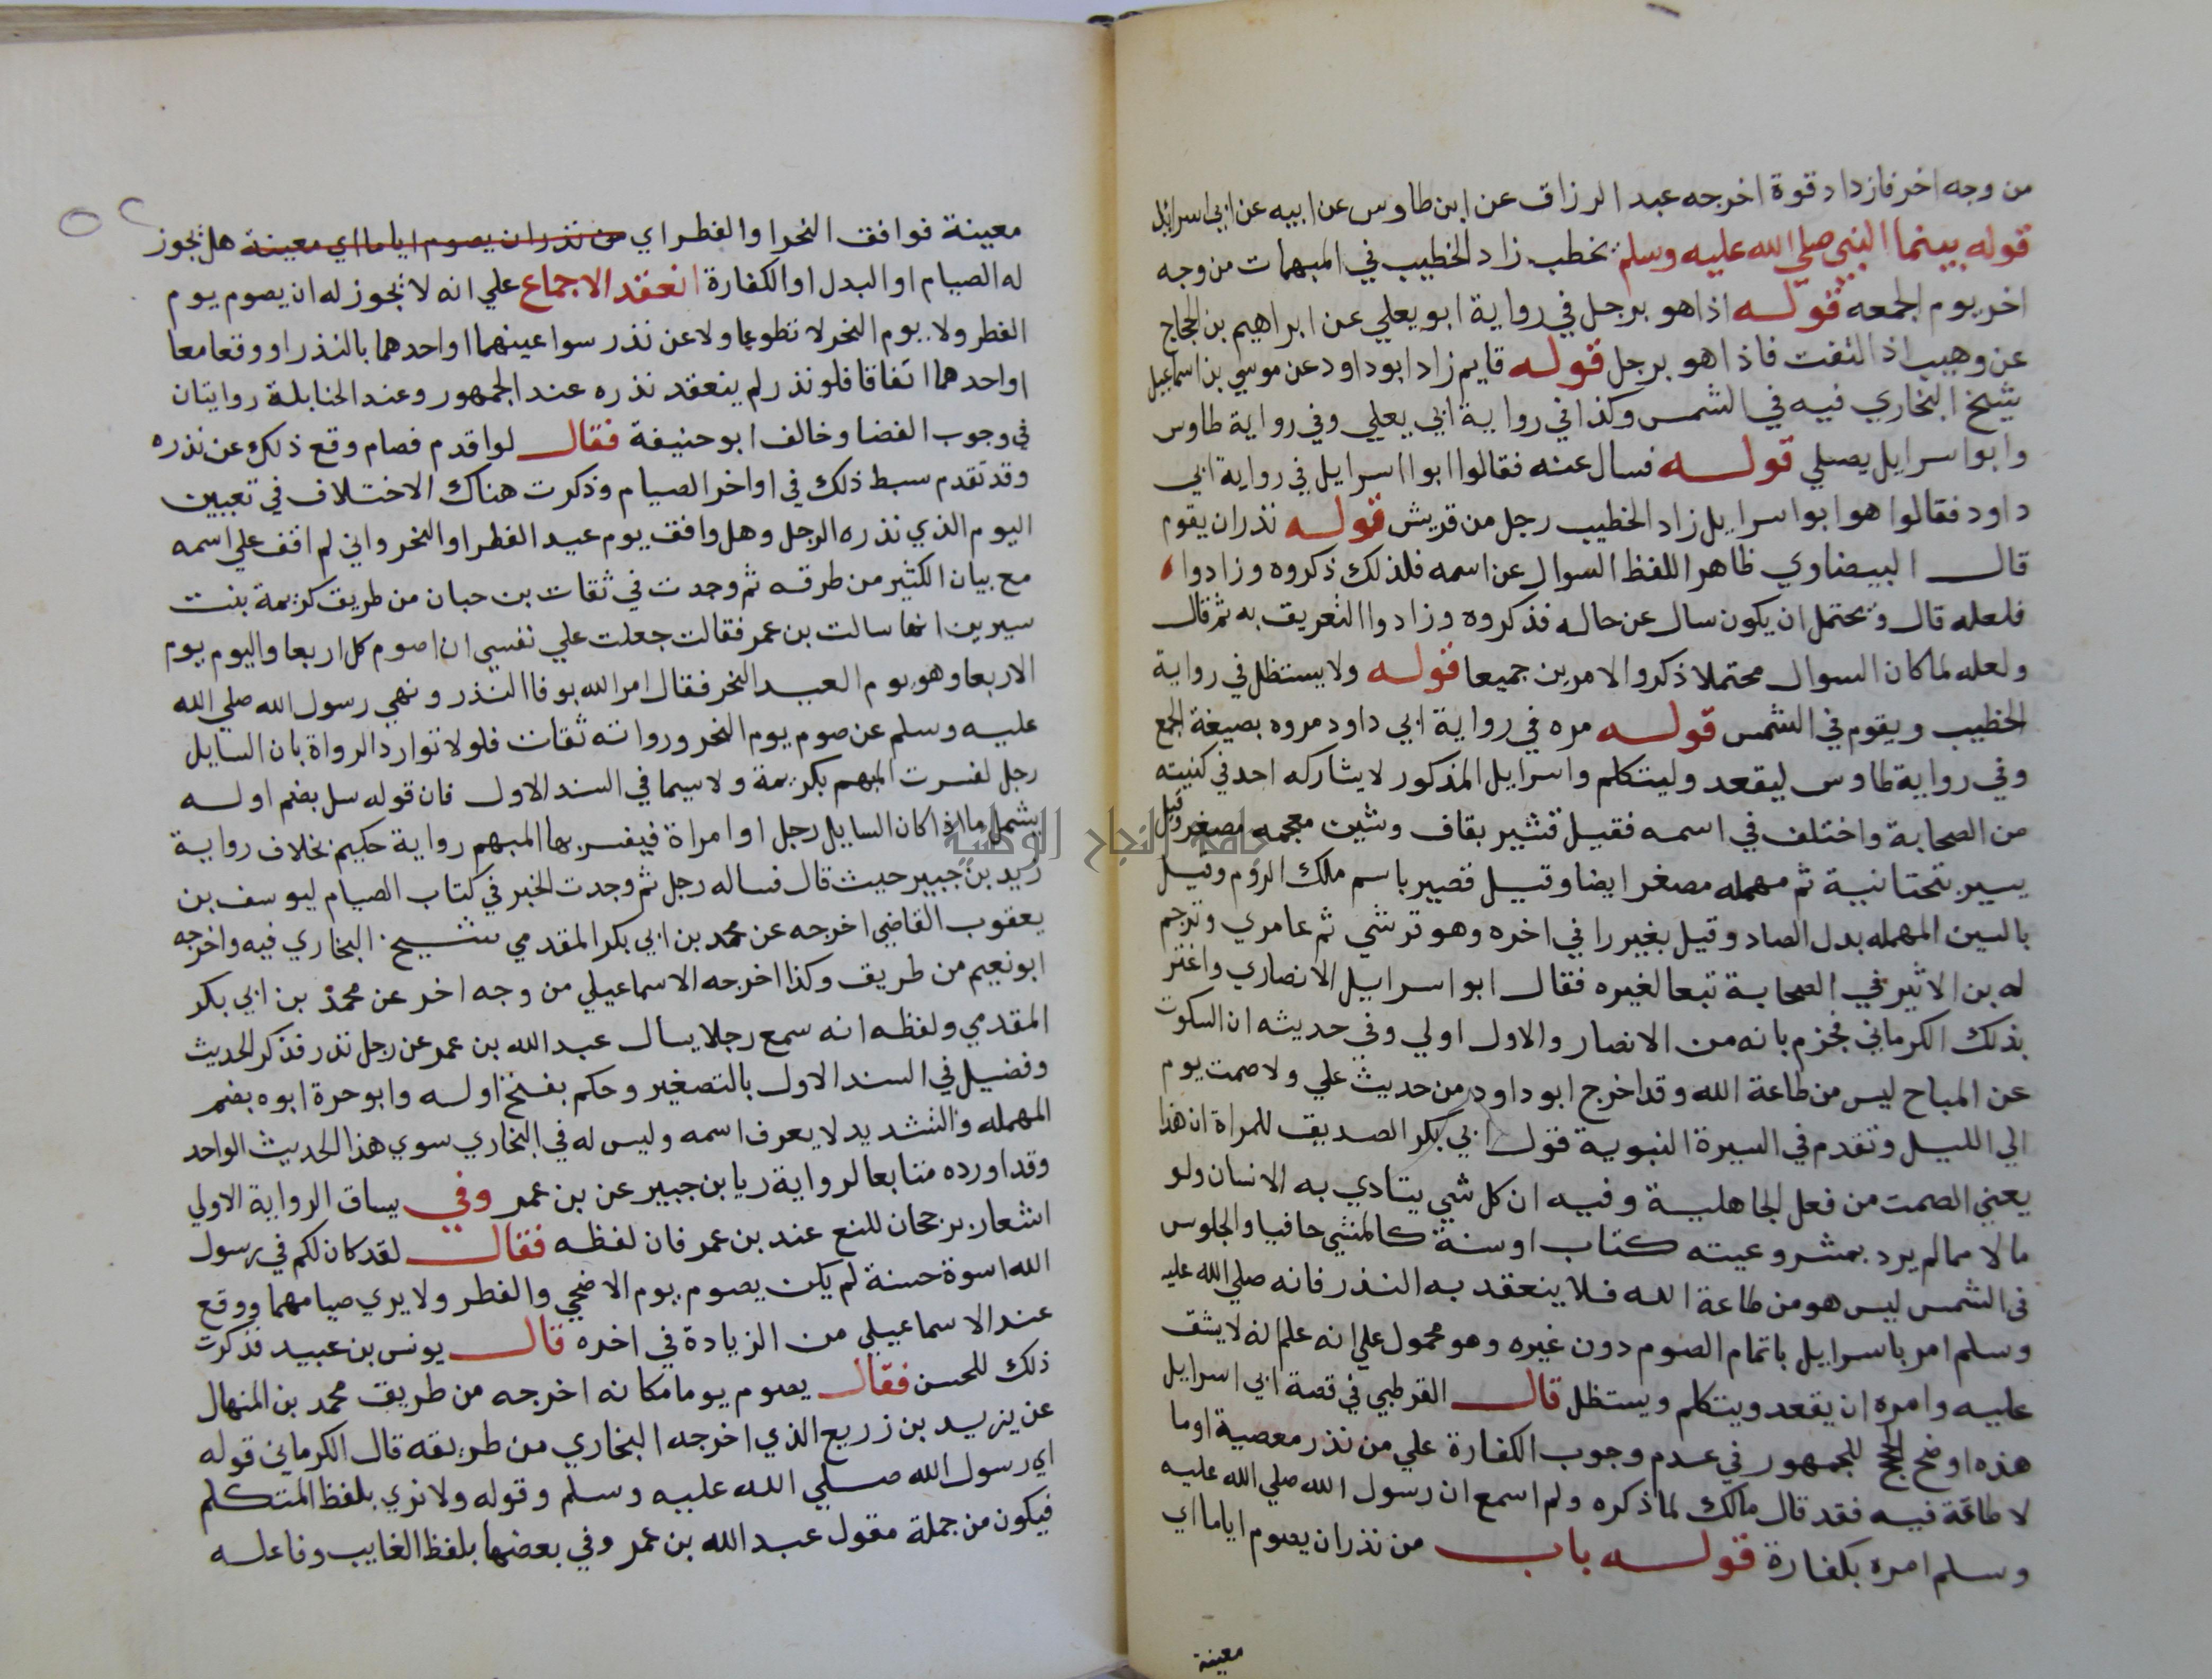 من وجه اخر فازداد قوة اخرجه عبد الرزاق عن ابن طاوس عن ابيه عن ابي اسرايل
قوله بينما النبي صلي الله عليه وسلم يخطب زاد الخطيب في المبهمات من وجه
اخر يوم الجمعه قوله اذا هو برجل في رواية ابو يعلي عن ابراهيم بن الحجاج
عن وهيب اذ التفت فاذا هو برجل قوله قايم زاد ابو داود عن موسي بن اسماعيل
شيخ البخاري فيه في الشمس وكذا في رواية ابي يعلي وفي رواية طاوس
وابو اسرايل يصلي قوله فسال عنه فقالوا ابوا اسرايل في رواية ابي
داود فقالوا هو ابو اسرايل زاد الخطيب رجل من قريش قوله نذر ان يقوم
قال البيضاوي ظاهر اللفظ السوال عن اسمه فلذلك ذكروه وزادوا
فلعله قال ويحتمل ان يكون سال عن حاله فذكروه وزادوا التعريف به ثم قال
ولعله لما كان السوال محتملا ذكروا الامرين جميعا قوله ولا يستظل في رواية
الخطيب ويقوم في الشمس قوله مره في رواية ابي داود مروه بصيغة الجمع
وفي رواية طاوس ليقعد وليتكلم واسرايل المذكور لا يشاركه احد في كنيته
من الصحابة واختلف في اسمه فقيل قشير بقاف وشين معجمه مصغر وقيل
يسير بتحتانية ثم مهمله مصغر ايضا وقيل قصير باسم ملك الروم وقيل
بالسين المهمله بدل الصاد وقيل بغير را في اخره وهو قرشي ثم عامري وترجم
له بن الاثير في الصحابة تبعا لغيره فقال ابو اسرايل الانصاري واغتر
بذلك الكرماني فجزم بانه من الانصار والاول اولي وفي حديثه ان السكوت
عن المباح ليس من طاعة الله وقد اخرج ابو داود من حديث علي ولا صمت يوم
الي الليل وتقدم في السيرة النبوية قول ابي بكر الصديق للمراة ان هذا
يعني الصمت من فعل الجاهلية وفيه ان كل شي يتادي به الانسان ولو
مالا مما لم يرد بمشروعيته كتاب او سنة كالمشي حافيا والجلوس
في الشمس ليس هو من طاعة الله فلا ينعقد به النذر فانه صلي الله عليه
وسلم امر با سرايل باتمام الصوم دون غيره وهو محمول علي انه علم انه لا يشق
عليه وامره ان يقعد ويتكلم ويستظل قال القرطبي في قصة ابي اسرايل
هذه اوضح الحجج للجمهور في عدم وجوب الكفارة علي من نذر معصية او ما
لا طاعة فيه فقد قال مالك لما ذكره ولم اسمع ان رسول الله صلي الله عليه
وسلم امره بكفارة قوله باب من نذر ان يصوم اياما اي
معينة
معينة فوافق النحر او الفطر اي من نذر ان يصوم اياما اي معينة هل يجوز
له الصيام او البدل او الكفارة انعقد الاجماع علي انه لا يجوز له ان يصوم يوم
الفطر ولا يوم النحر لا تطوعا ولا عن نذر سوا عينهما او احدهما بالنذر او وقعا معا
او احدهما اتفاقا فلو نذر لم ينعقد نذره عند الجمهور وعند الحنابلة روايتان
في وجوب القضا وخالف ابو حنيفة فقال لو اقدم فصام وقع ذلك عن نذره
وقد تقدم سبط ذلك في اواخر الصيام وذكرت هناك الاختلاف في تعيين
اليوم الذي نذره الرجل وهل وافق يوم عيد الفطر او النحر واني لم اقف علي اسمه
مع بيان الكثير من طرقه ثم وجدت في ثقات بن حبان من طريق كريمة بنت
سيرين انها سالت بن عمر فقالت جعلت علي نفسي ان اصوم كل اربعا واليوم يوم
الاربعا وهو يوم العيد النحر فقال امر الله بوفا النذر ونهي رسول الله صلي الله
عليه وسلم عن صوم يوم النحر ورواته ثقات فلولا توارد الرواة بان السايل
رجل لفسرت المبهم بكريمة ولا سيما في السند الاول فان قوله سل بضم اوله
يشمل ما اذا كان السايل رجل او امراة فيفسر بها المبهم رواية حكيم بخلاف رواية
زيد بن جبير حيث قال فساله رجل ثم وجدت الخبر في كتاب الصيام ليوسف بن
يعقوب القاضي اخرجه عن محمد بن ابي بكر المقدمي شيخ البخاري فيه واخرجه
ابو نعيم من طريق وكذا اخرجه الاسماعيلي من وجه اخر عن محمد بن ابي بكر
المقدمي ولفظه انه سمع رجلا يسال عبد الله بن عمر عن رجل نذر فذكر الحديث
وفضيل في السند الاول بالتصغير وحكم بفتح اوله وابو حرة ابوه بضم
المهمله والتشديد لا يعرف اسمه وليس له في البخاري سوي هذا الحديث الواحد
وقد اورده متابعا لرواية ريا بن جبير عن بن عمر وفي سياق الرواية الاولي
اشعار برجحان للنع عند بن عمر فان لفظه فقال لقد كان لكم في رسول
الله اسوة حسنة لم يكن يصوم يوم الاضحي والفطر ولا يري صيامهما ووقع
عند الاسماعيلي من الزيادة في اخره قال يونس بن عبيد فذكرت
ذلك للحسن فقال يصوم يوما مكانه اخرجه من طريق محمد بن المنهال
عن يزيد بن زريع الذي اخرجه البخاري من طريقه قال الكرماني قوله
اي رسول الله صلي الله عليه وسلم وقوله ولا نري بلفظ المتكلم
فيكون من جملة مقول عبد الله بن عمر وفي بعضها بلفظ الغايب وفاعله
جامعة النجاح الوطنية